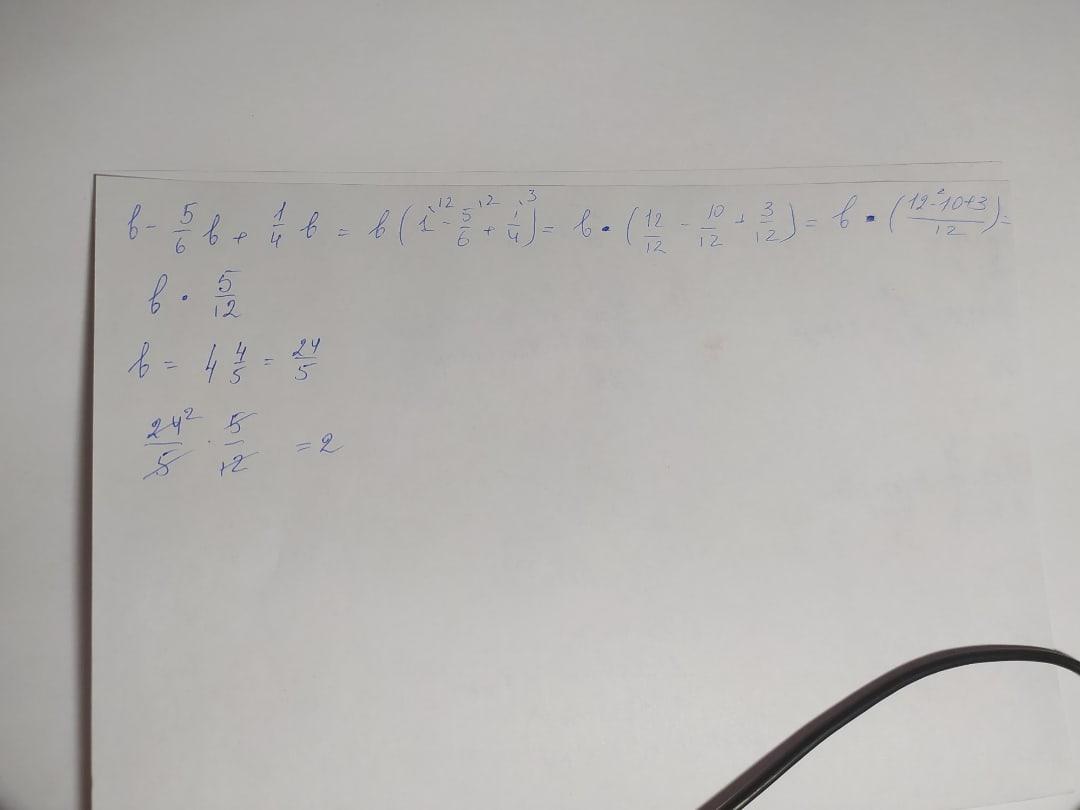 b - 5/6 b + 1/4 b = b (1^12 - 5/6^2 + 1/4^3) = b · (12/12 - 10/12 + 3/12) = b · ((12-10+3)/12) =
b · 5/12
b = 4 4/5 = 24/5
24^2/5 · 5/12 = 2